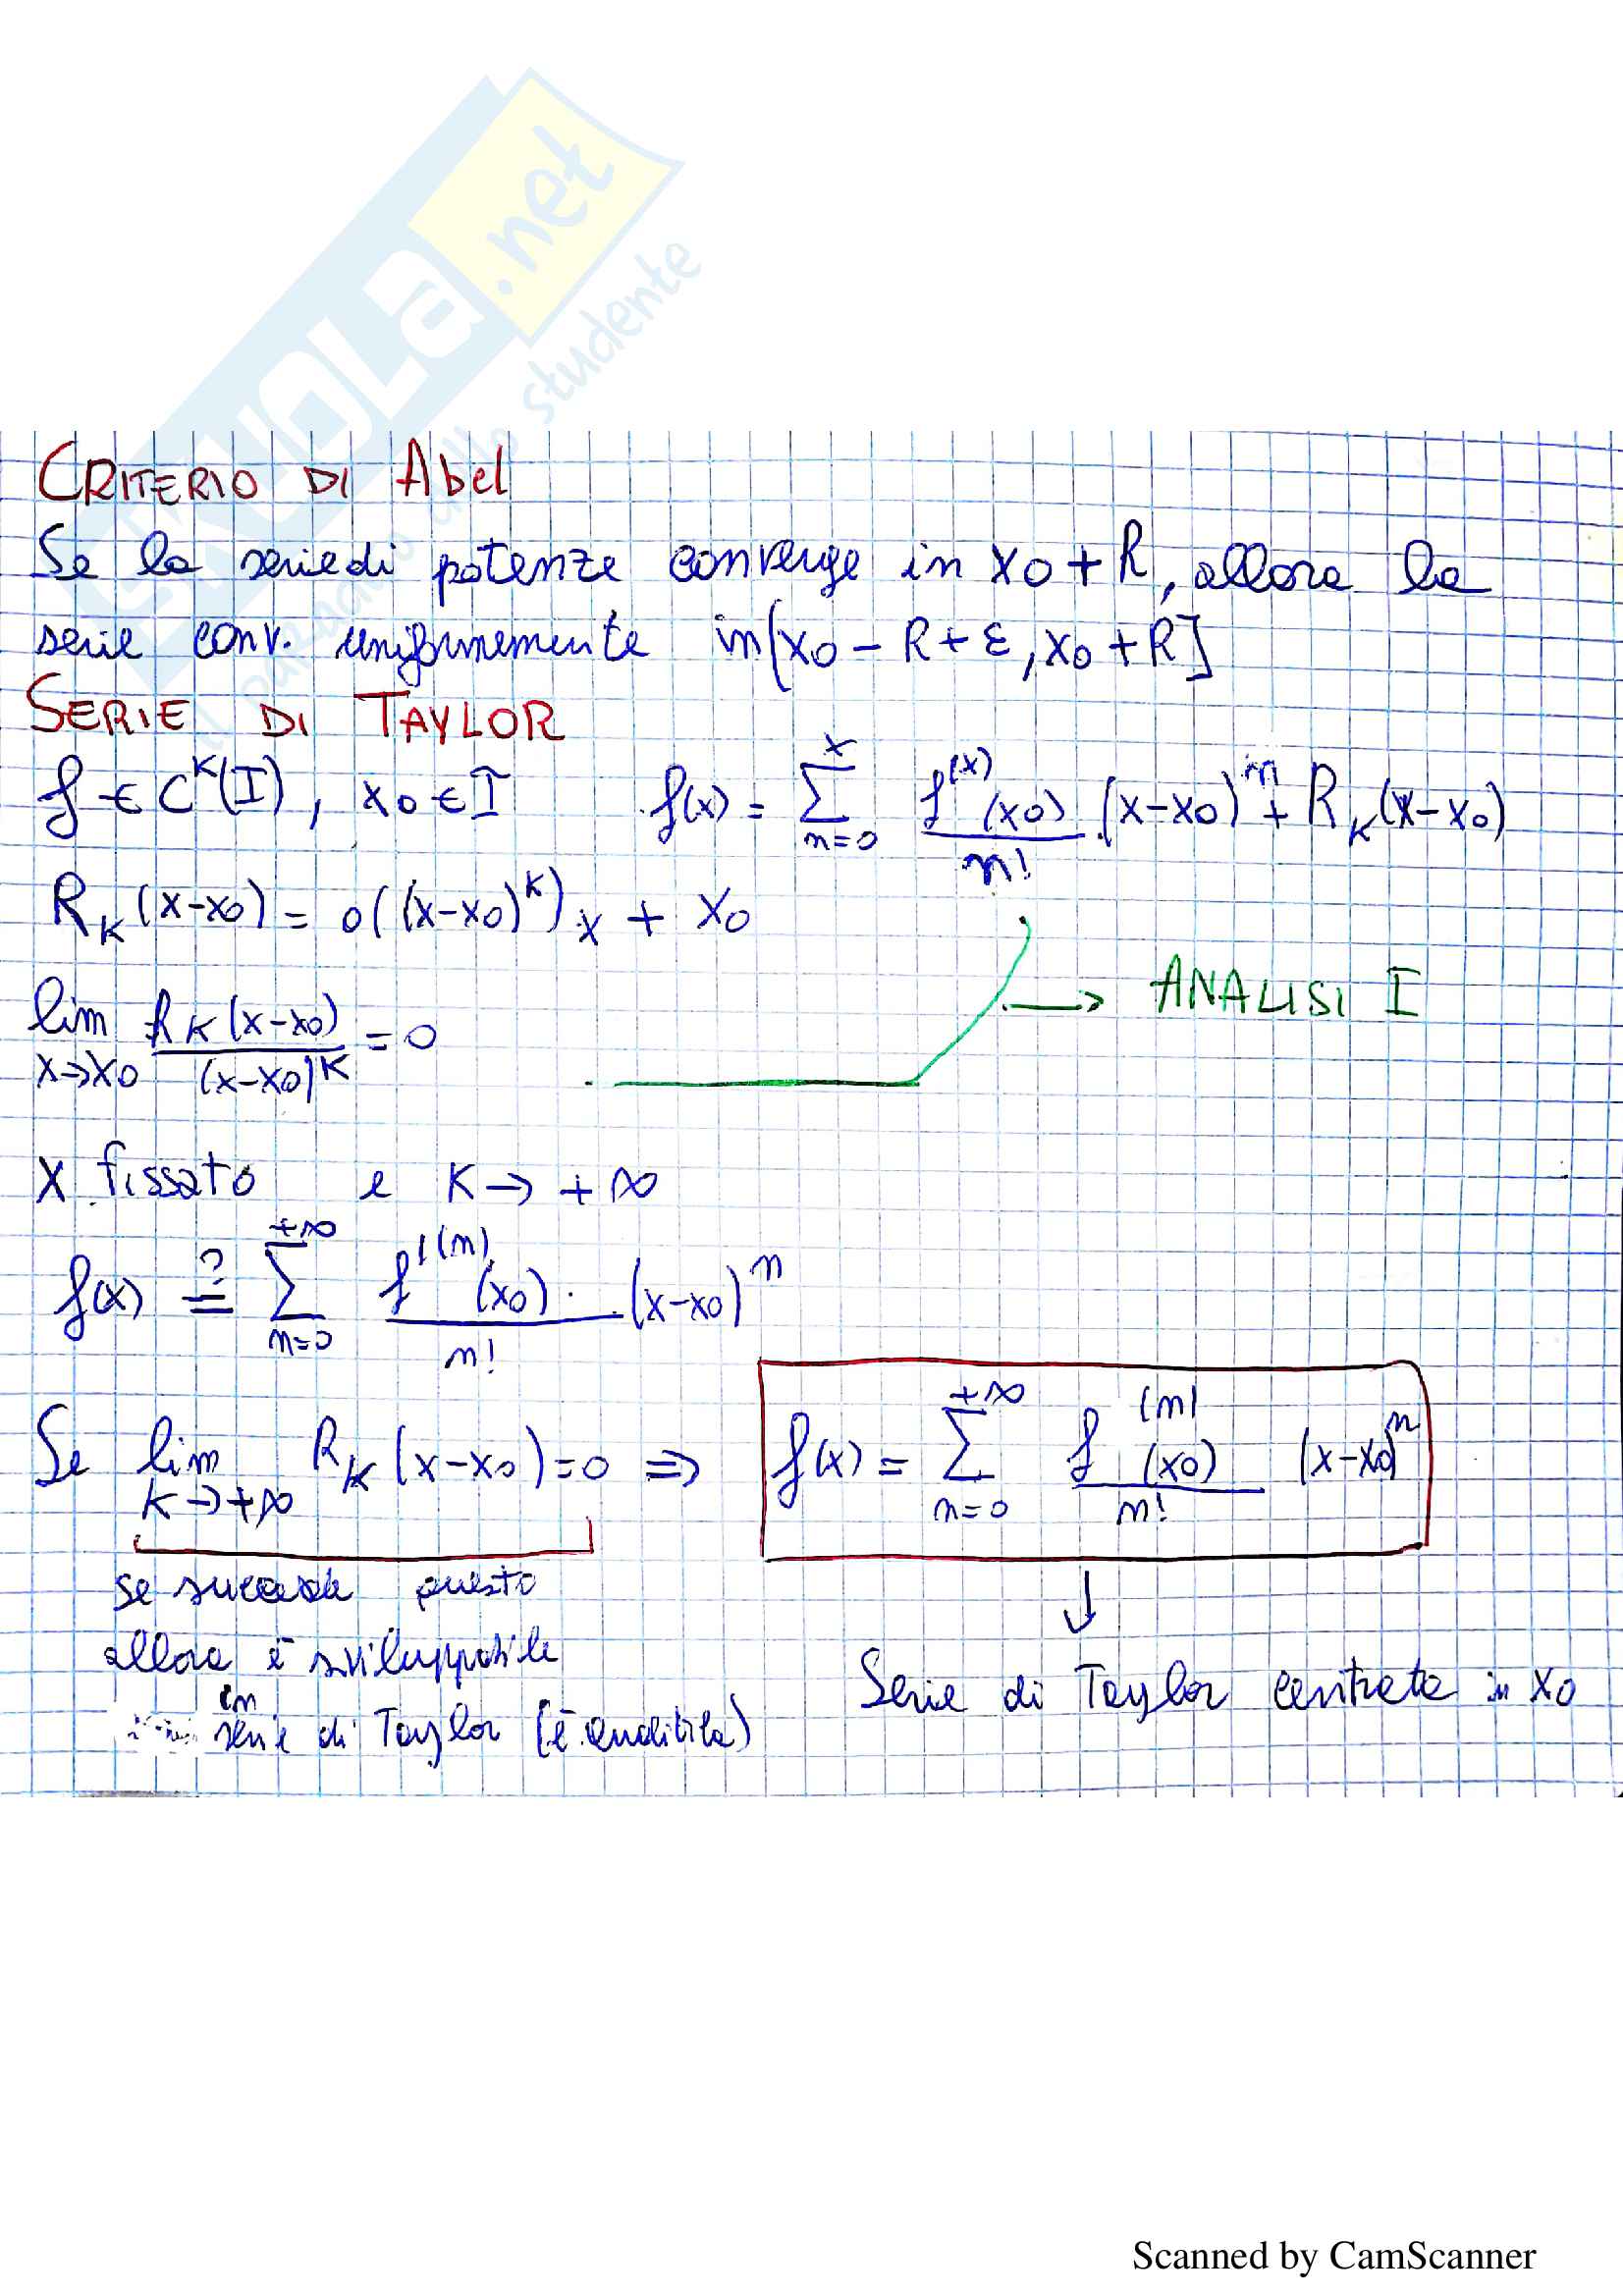 SKUOLa.net
il paradiso dello studente
CRITERIO DI Abel
Se la serie di potenze converge in x0 + R, allora la
serie conv. uniformemente in [x0 - R + ε, x0 + R]
SERIE DI TAYLOR
f ∈ C^K(I), x0 ∈ I f(x) = Σ_{n=0}^{x} f^{(x)}(x0)/n! · (x-x0)^n + R_K(x-x0)
R_K(x-x0) = o((x-x0)^K) x + x0
lim_{x→x0} R_K(x-x0)/(x-x0)^K = 0
→ ANALISI I
x fissato e K → +∞
f(x) ≟ Σ_{n=0}^{+∞} f^{(n)}(x0)/n! · (x-x0)^n
Se lim_{K→+∞} R_K(x-x0) = 0 ⇒ f(x) = Σ_{n=0}^{+∞} f^{(n)}(x0)/n! (x-x0)^n
se succede questo
allora è sviluppabile
in serie di Taylor (è analitica)
↓
Serie di Taylor centrata in x0
Scanned by CamScanner